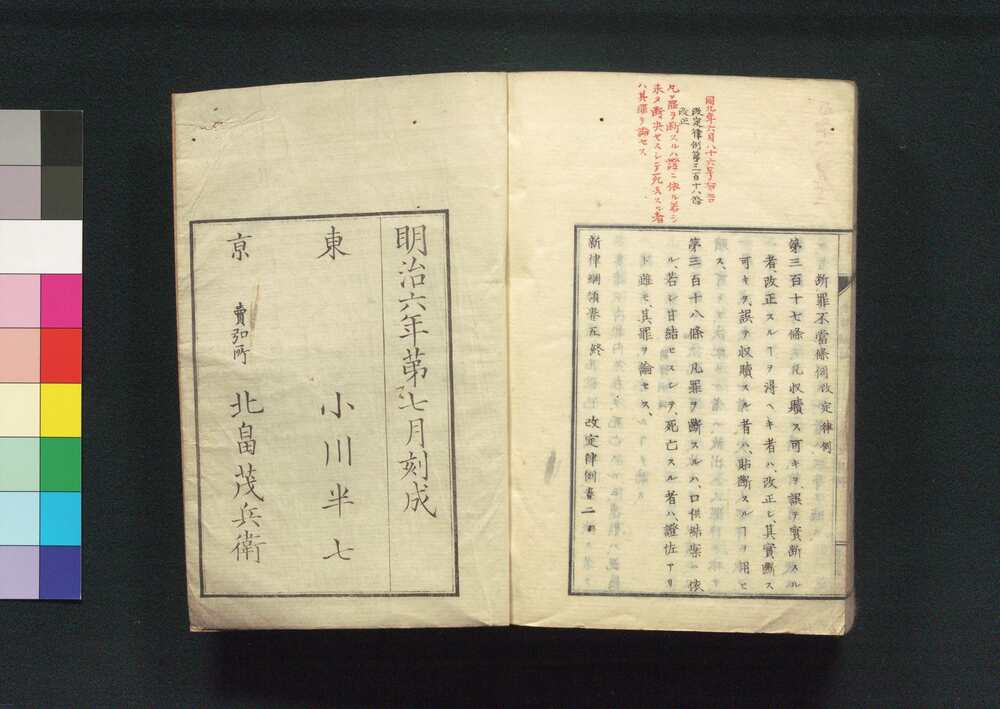 改定律例第三百十八條
改正
凡ソ罪ヲ斷スルハ證ニ依ル若シ
未タ斷決セスシテ死亡スル者
ハ其罪ヲ論セス
斷罪不當條例改定律例
第三百十七條 凡收贖ス可キヲ、誤テ實斷スル
者、改正スルヿヲ得ヘキ者ハ、改正シ、其實斷ス
可キヲ、誤テ收贖スル者ハ、貼斷スルヿヲ用ヒ
ス、
第三百十八條 凡罪ヲ斷スルハ、口供結案ニ依
ル、若シ甘結セスシテ、死亡スル者ハ、證佐アリ
ト雖モ、其罪ヲ論セス、
新律綱領卷五終 改定律例卷二終
明治六年第七月刻成
東 小川半七
京 賣弘所 北畠茂兵衛